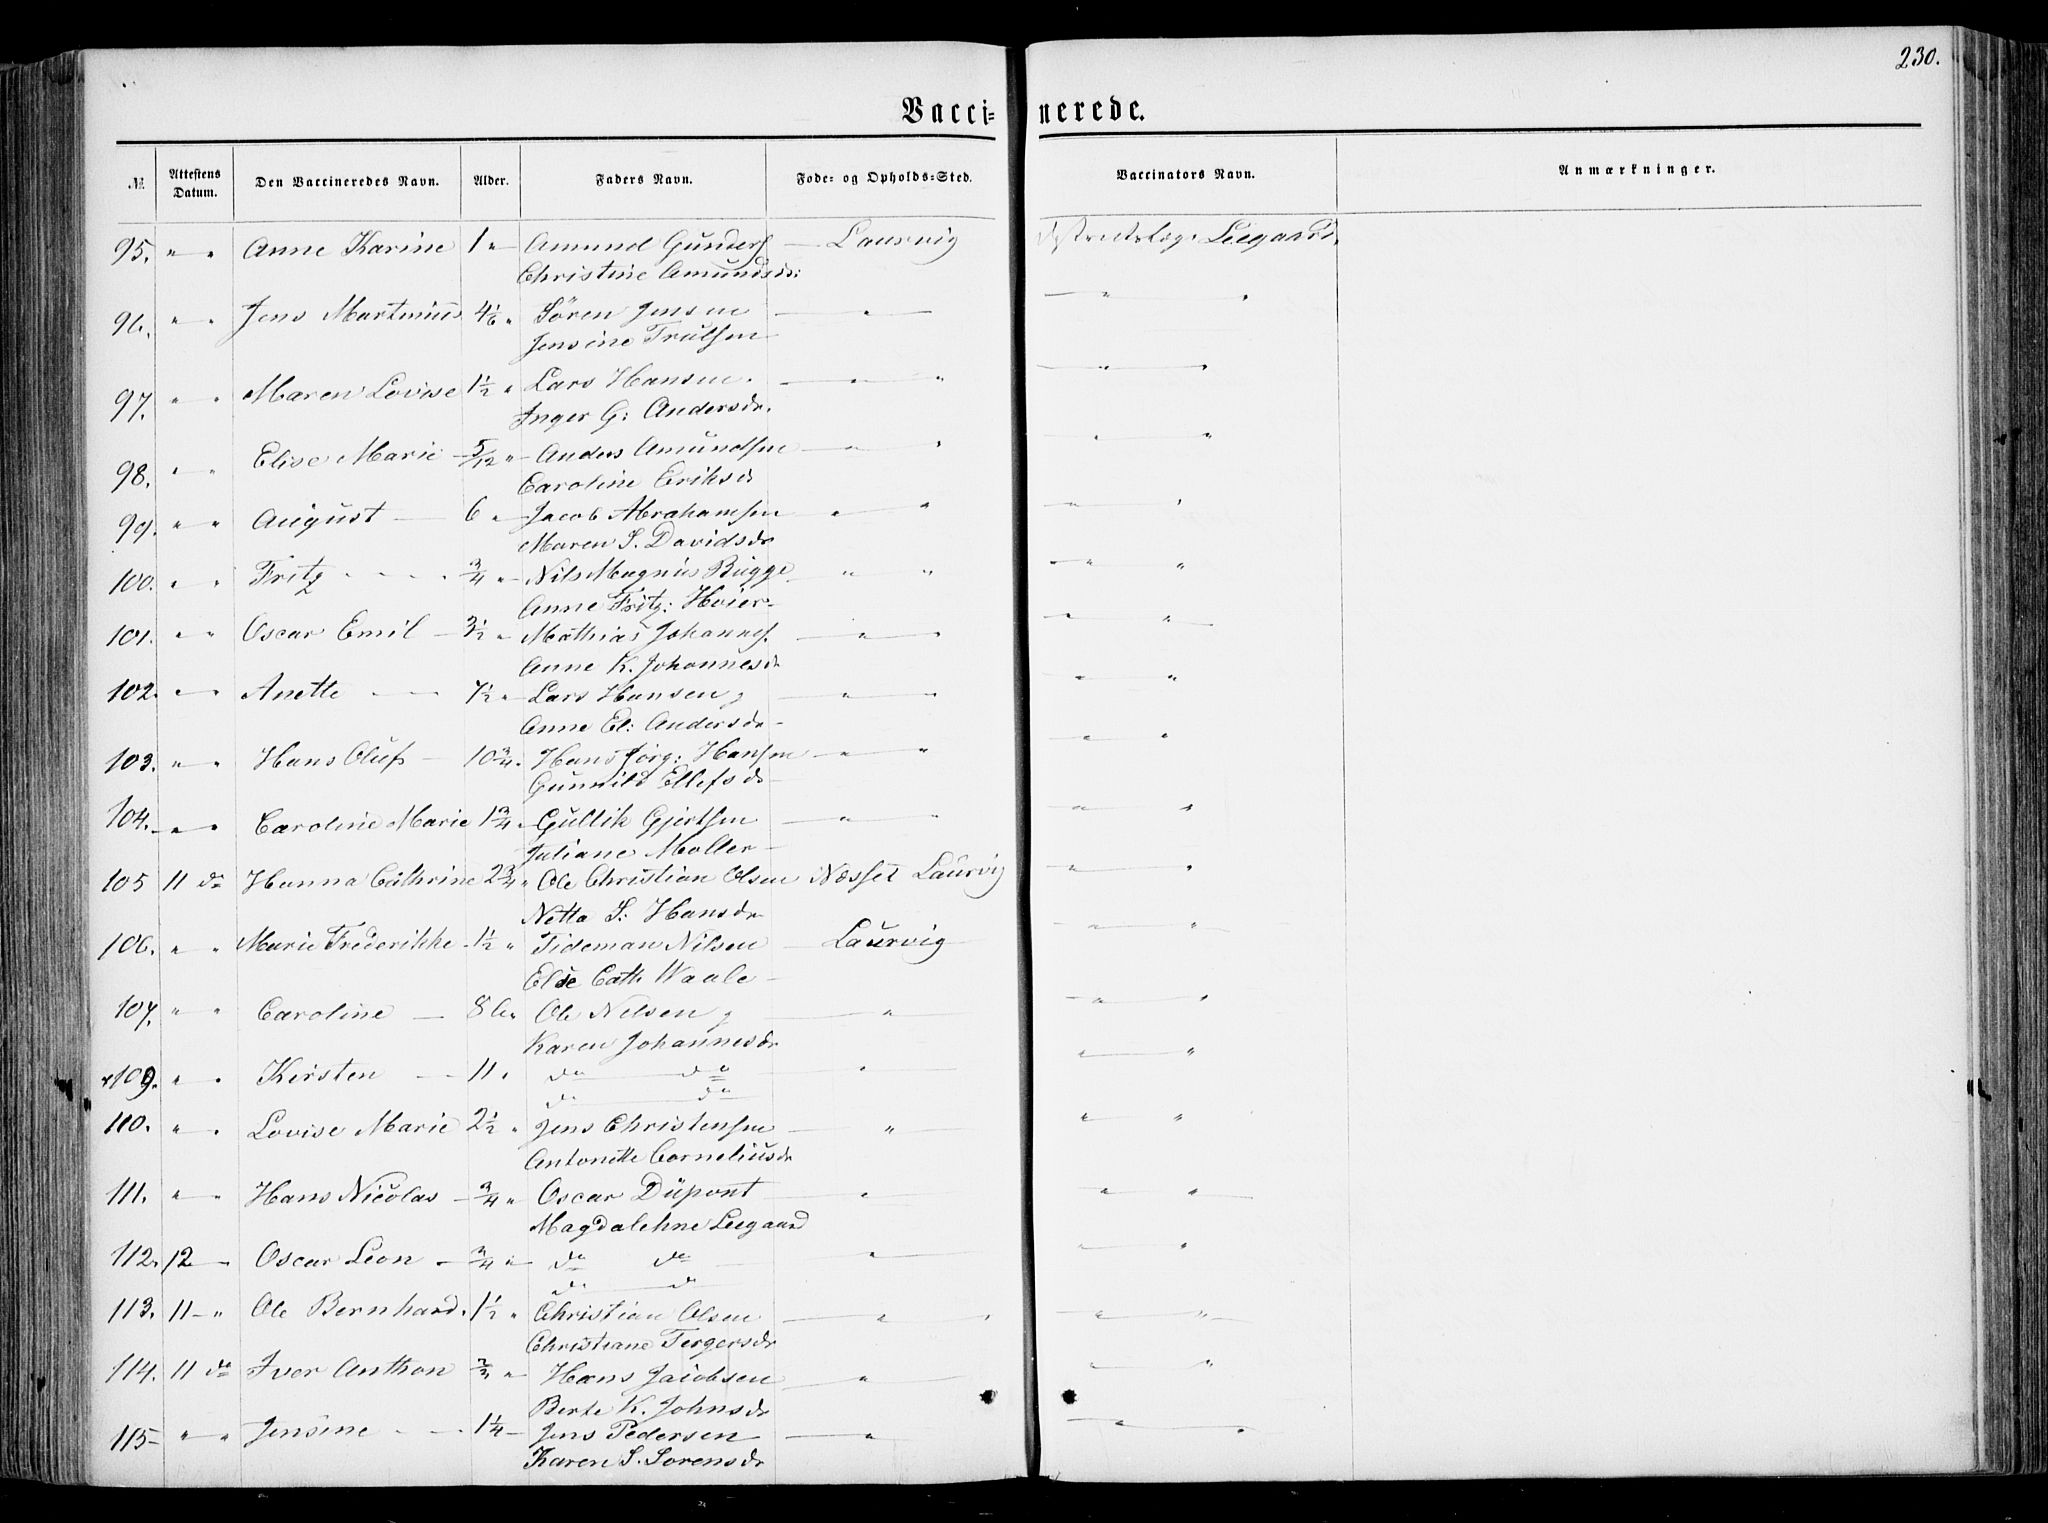 230.
Vacci- nerede.
№ Attestens Datum. Den Vaccineredes Navn. Alder. Faders Navn. Føde- og Opholds-Sted. Vaccinators Navn. Anmærkninger.
95. " " Anne Karine 1 " Amund Gunders — Laurvig Leegaard.
Christine Amundsdr:
96. " " Jens Martinius 4 1/6 " Sören Jensen — " — — " — "
Jensine Trulsen
97. " " Maren Lovise 1 1/2 " Lars Hansen. — " — " — " — "
Inger G: Andersdr.
98. " " Elise Marie — 5/12 " Anders Amundsen — " — " " — "
Caroline Eriksd
99. " " August — 6 " Jacob Abrahamsen " — " " — "
Maren S. Davidsdr
100. " " Fritz - - - 3/4 " Nils Magnus Bugge " " — " — "
Anne Fritz: Hoier
101. " " Oscar Emil — 3 1/2 " Mathias Johannes. — " — " " — " —
Anne K. Johannesdr
102. " " Anette — 7 1/2 " Lars Hansen — " — " " — "
Anne El: Andersdr —
103. " " Hans Oluf — 10 3/4 " Hans Jörg: Hansen — " — " — " — "
Gunnild Ellefsdr —
104. " " Caroline Marie 1 3/4 " Gullik Gjertsen — " — " — " — "
Juliane Moller —
105 11 do Hanna Cathrine 2 3/4 " Ole Christian Olsen Næsset Laurvig — " — "
Netta S: Hansdr
106. " " Marie Frederikke 1 1/2 " Tideman Nilsen — Laurvig — " — "
Else Cath Waale —
107. " " Caroline — 8 " Ole Nilsen — " — — " — "
Karen Johannesdr
109. " " Kirsten — 11 " do — do " — " — "
do — do
110. " " Lovise Marie 2 1/2 " Jens Christensen — " — " — "
Antonette Corneliusdr
111. " " Hans Nicolas — 3/4 " Oscar Düpont " — " — " —
Magdalehne Leegaard
112. 12 — " Oscar Leon — 3/4 " do do — " — — " — "
do — do
113. 11 — " Ole Bernhard. 1 1/2 " Christian Olsen — " — " — " — " —
Christiane Tergersdr
114. 11 do Iver Anthon " Hans Jacobsen — " — — " — "
Berte K. Johnsdr
115 — " " Jensine - - - 1 1/4 — Jens Pedersen — " — — " — "
Karen S. Sorensdr